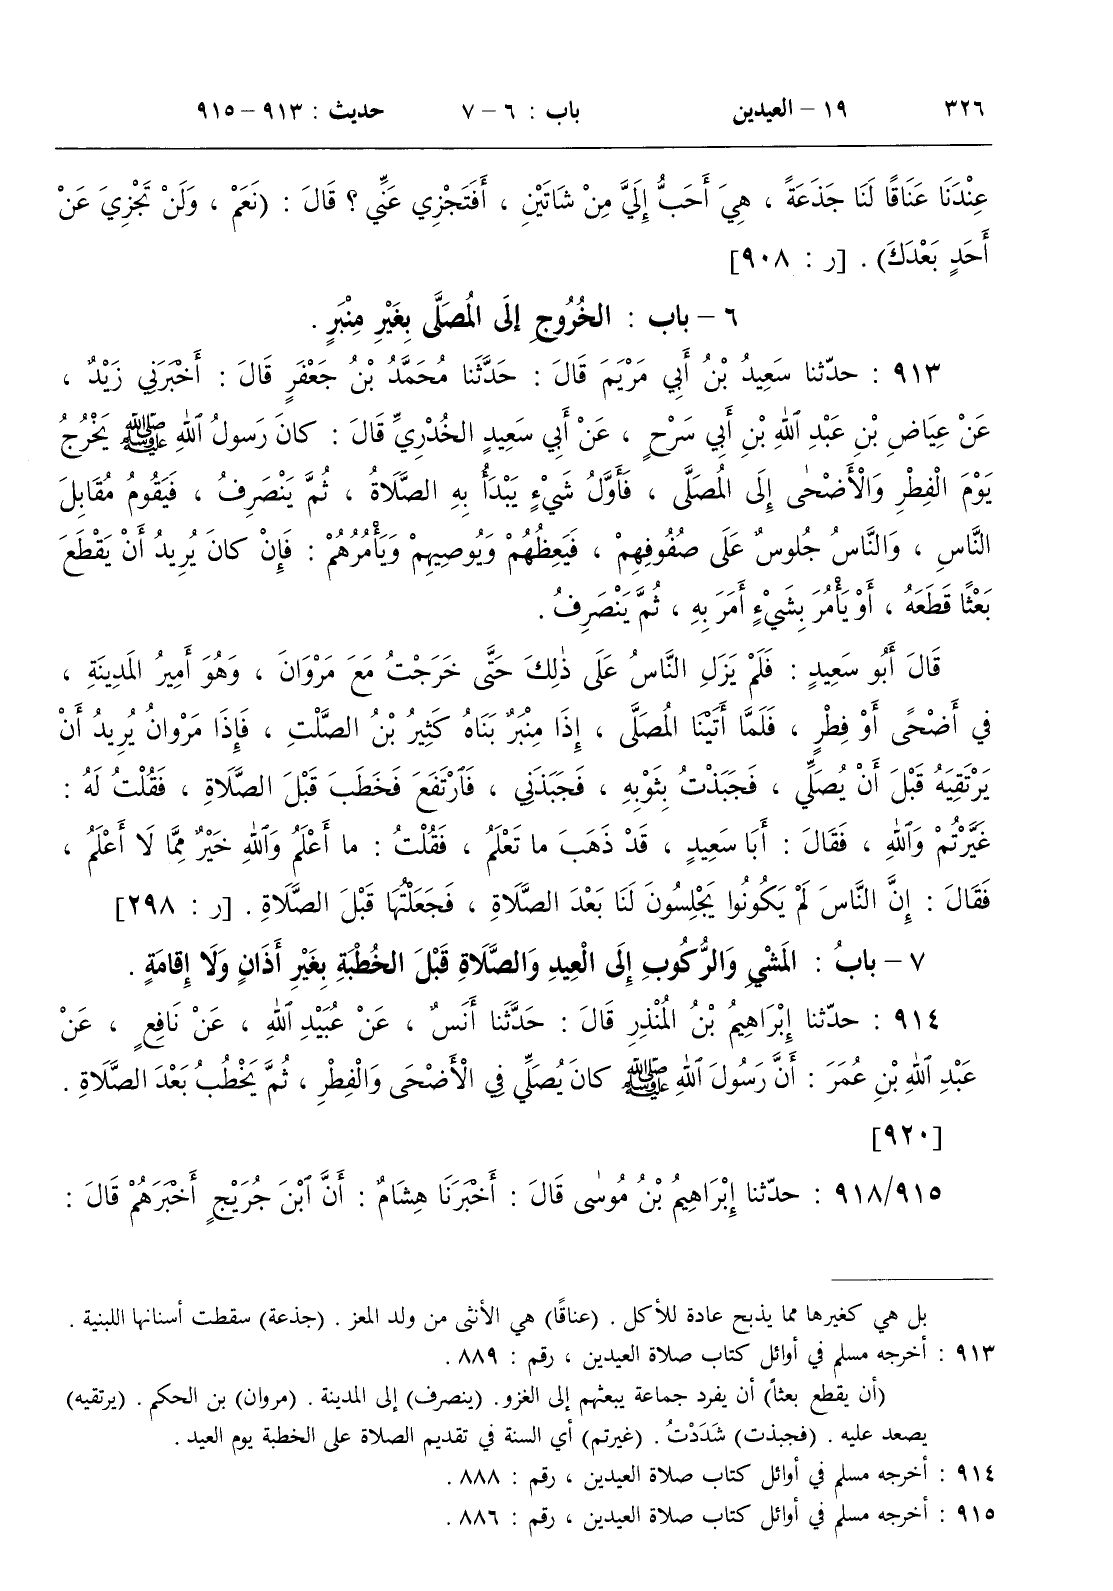 ٣٢٦ ١٩ – العيدين باب : ٦ – ٧ حديث : ٩١٣ – ٩١٥
عِنْدَنَا عَنَاقًا لَنَا جَذَعَةً ، هِيَ أَحَبُّ إِلَيَّ مِنْ شَاتَيْنِ ، أَفَتَجْزِي عَنِّي ؟ قَالَ : (نَعَمْ ، وَلَنْ تَجْزِيَ عَنْ
أَحَدٍ بَعْدَكَ) . [ر : ٩٠٨]
٦ – باب : الخُرُوجِ إِلَى الْمُصَلَّى بِغَيْرِ مِنْبَرٍ .
٩١٣ : حدّثنا سَعِيدُ بْنُ أَبِي مَرْيَمَ قَالَ : حَدَّثَنَا مُحَمَّدُ بْنُ جَعْفَرٍ قَالَ : أَخْبَرَنِي زَيْدٌ ،
عَنْ عِيَاضِ بْنِ عَبْدِ ٱللهِ بْنِ أَبِي سَرْحٍ ، عَنْ أَبِي سَعِيدٍ الخُدْرِيِّ قَالَ : كانَ رَسولُ ٱللهِ ﷺ يَخْرُجُ
يَوْمَ الْفِطْرِ وَالْأَضْحٰى إِلَى الْمُصَلَّى ، فَأَوَّلُ شَيْءٍ يَبْدَأُ بِهِ الصَّلَاةُ ، ثُمَّ يَنْصَرِفُ ، فَيَقُومُ مُقَابِلَ
النَّاسِ ، وَالنَّاسُ جُلوسٌ عَلَى صُفُوفِهِمْ ، فَيَعِظُهُمْ وَيُوصِيهِمْ وَيَأْمُرُهُمْ : فَإِنْ كانَ يُرِيدُ أَنْ يَقْطَعَ
بَعْثًا قَطَعَهُ ، أَوْ يَأْمُرَ بِشَيْءٍ أَمَرَ بِهِ ، ثُمَّ يَنْصَرِفُ .
قَالَ أَبُو سَعِيدٍ : فَلَمْ يَزَلِ النَّاسُ عَلَى ذٰلِكَ حَتَّى خَرَجْتُ مَعَ مَرْوَانَ ، وَهُوَ أَمِيرُ المَدِينَةِ ،
في أَضْحًى أَوْ فِطْرٍ ، فَلَمَّا أَتَيْنَا الْمُصَلَّى ، إِذَا مِنْبَرٌ بَنَاهُ كَثِيرُ بْنُ الصَّلْتِ ، فَإِذَا مَرْوانُ يُرِيدُ أَنْ
يَرْتَقِيَهُ قَبْلَ أَنْ يُصَلِّي ، فَجَبَذْتُ بِثَوْبِهِ ، فَجَبَذَنِي ، فَٱرْتَفَعَ فَخَطَبَ قَبْلَ الصَّلَاةِ ، فَقُلْتُ لَهُ :
غَيَّرْتُمْ وَٱللهِ ، فَقَالَ : أَبَا سَعِيدٍ ، قَدْ ذَهَبَ ما تَعْلَمُ ، فَقُلْتُ : ما أَعْلَمُ وَٱللهِ خَيْرٌ مِمَّا لَا أَعْلَمُ ،
فَقَالَ : إِنَّ النَّاسَ لَمْ يَكُونُوا يَجْلِسُونَ لَنَا بَعْدَ الصَّلَاةِ ، فَجَعَلْتُهَا قَبْلَ الصَّلَاةِ . [ر : ٢٩٨]
٧ – بابُ : المَشْيِ وَالرُّكُوبِ إِلَى الْعِيدِ وَالصَّلَاةِ قَبْلَ الخُطْبَةِ بِغَيْرِ أَذَانٍ وَلَا إِقامَةٍ .
٩١٤ : حدّثنا إِبْرَاهِيمُ بْنُ المُنْذِرِ قَالَ : حَدَّثَنَا أَنَسٌ ، عَنْ عُبَيْدِ ٱللهِ ، عَنْ نَافِعٍ ، عَنْ
عَبْدِ ٱللهِ بْنِ عُمَرَ : أَنَّ رَسُولَ ٱللهِ ﷺ كانَ يُصَلِّي فِي الْأَضْحَى وَالْفِطْرِ ، ثُمَّ يَخْطُبُ بَعْدَ الصَّلَاةِ .
[٩٢٠]
٩١٨/٩١٥ : حدّثنا إِبْرَاهِيمُ بْنُ مُوسٰى قَالَ : أَخْبَرَنَا هِشَامٌ : أَنَّ ٱبْنَ جُرَيْجٍ أَخْبَرَهُمْ قَالَ :
بل هي كغيرها مما يذبح عادة للأكل . (عناقًا) هي الأنثى من ولد المعز . (جذعة) سقطت أسنانها اللبنية .
٩١٣ : أخرجه مسلم في أوائل كتاب صلاة العيدين ، رقم : ٨٨٩ .
(أن يقطع بعثاً) أن يفرد جماعة يبعثهم إلى الغزو. (ينصرف) إلى المدينة . (مروان) بن الحكم . (يرتقيه)
يصعد عليه . (فجبذت) شَدَدْتُ . (غيرتم) أي السنة في تقديم الصلاة على الخطبة يوم العيد .
٩١٤ : أخرجه مسلم في أوائل كتاب صلاة العيدين ، رقم : ٨٨٨ .
٩١٥ : أخرجه مسلم في أوائل كتاب صلاة العيدين ، رقم : ٨٨٦ .